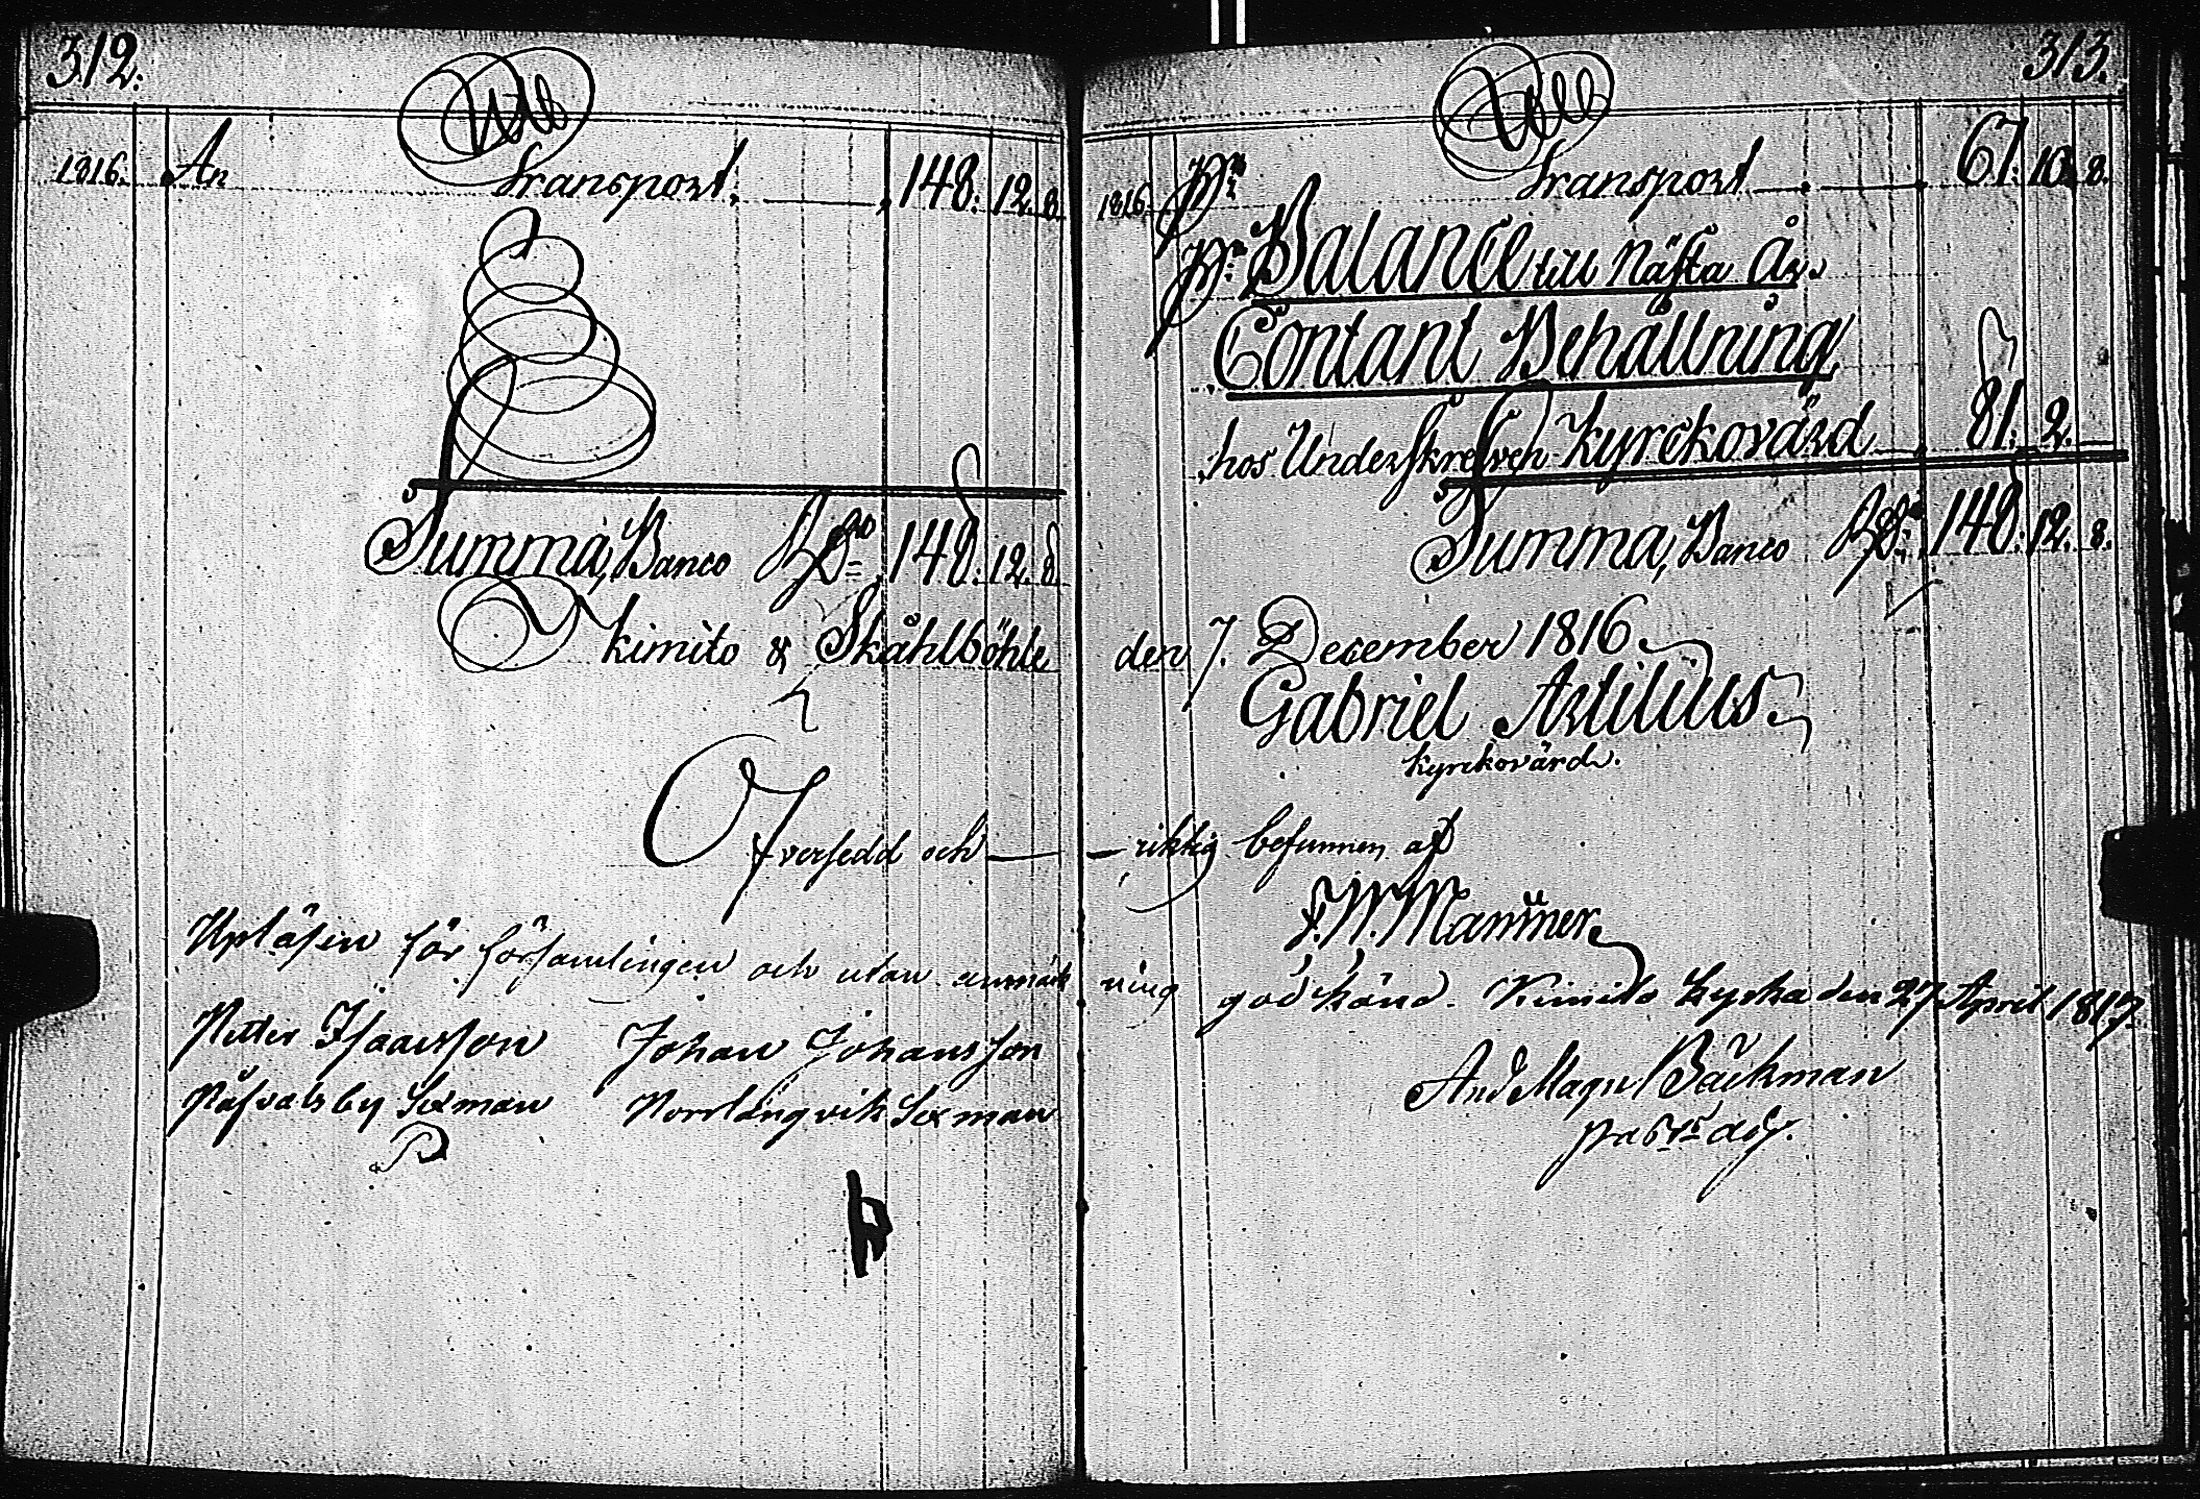 312.
1816. An Transport. 148. 12. 8.
Summa, Banco RD 148. 12. 8.
Kimito & Skåhlböhle
Öfversedd och
Upläsen för församlingen och utan anmärk
Petter Isaacsson Johan Johansson
Påfvalsby Sexman Norrlångvik Sexman
313.
1816. Pr Transport 67. 10. 8.
Pr Balance till Näſta År.
Contant Behållning
hos Underſkrefven Kyrckovärd 81. 2.
Summa, Banco RD 148. 12. 8.
den 7. December 1816.
Gabriel Artilius.
Kyrckovärd.
riktig befunnen af
F. W. Mammer.
ning godkänd. Kimito Kyrka den 27 April 1817.
And Magn Bäckman